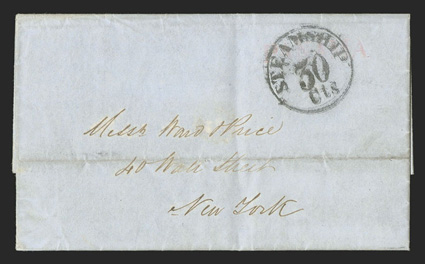 STEAMSHIP
30
Cts
Messrs Ward & Price
40 Wall Street
New York